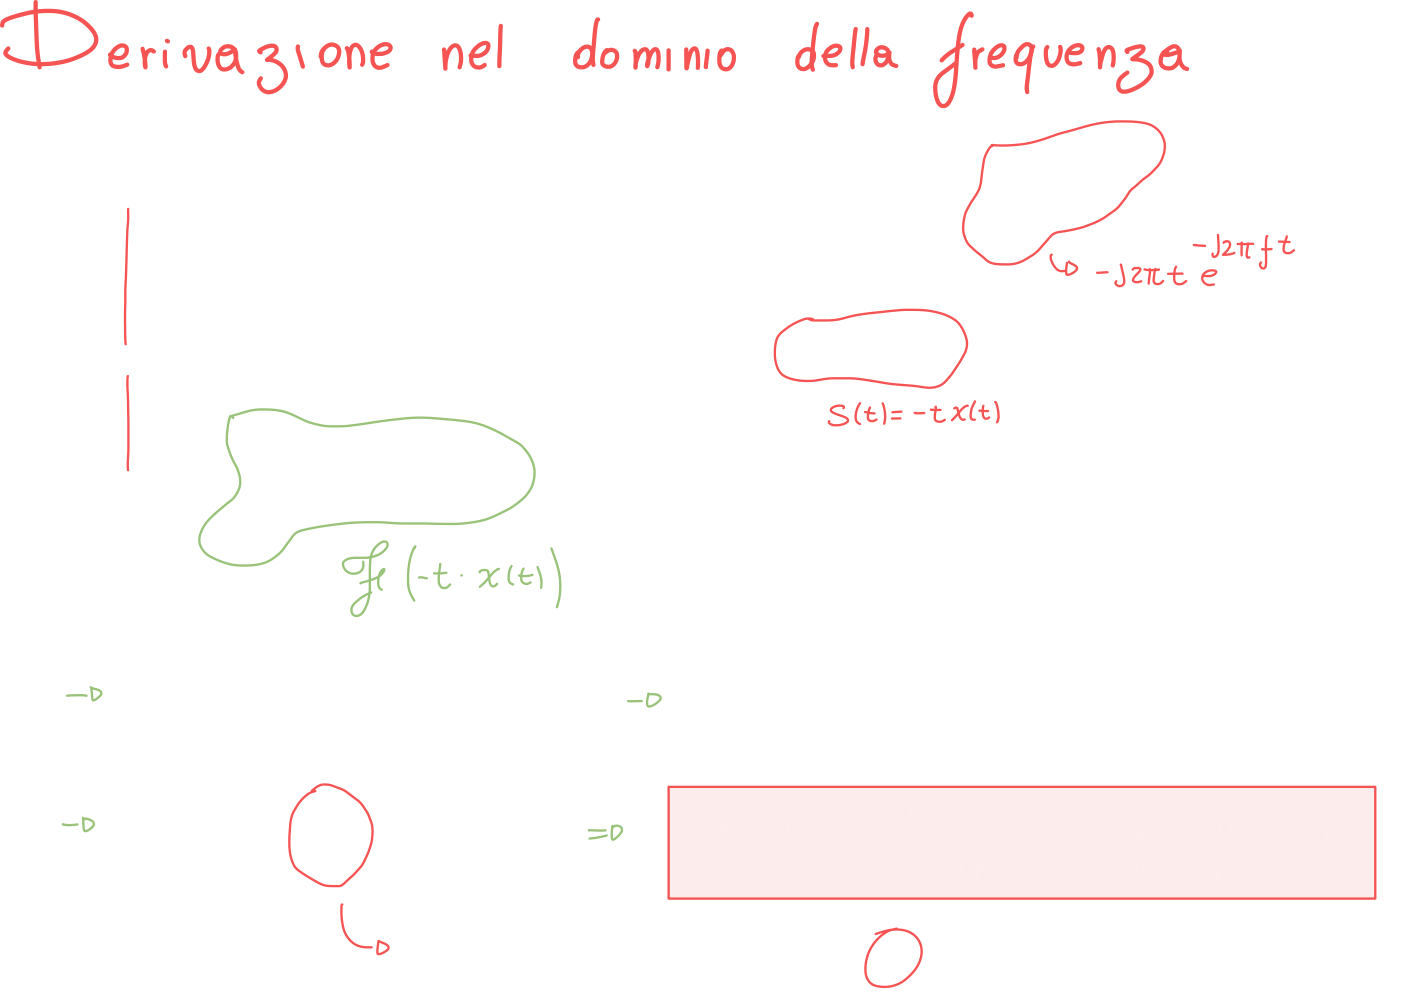 Derivazione nel dominio della frequenza
-j2πt e^{-j2πft}
S(t)= -t x(t)
ℱ(-t · x(t))